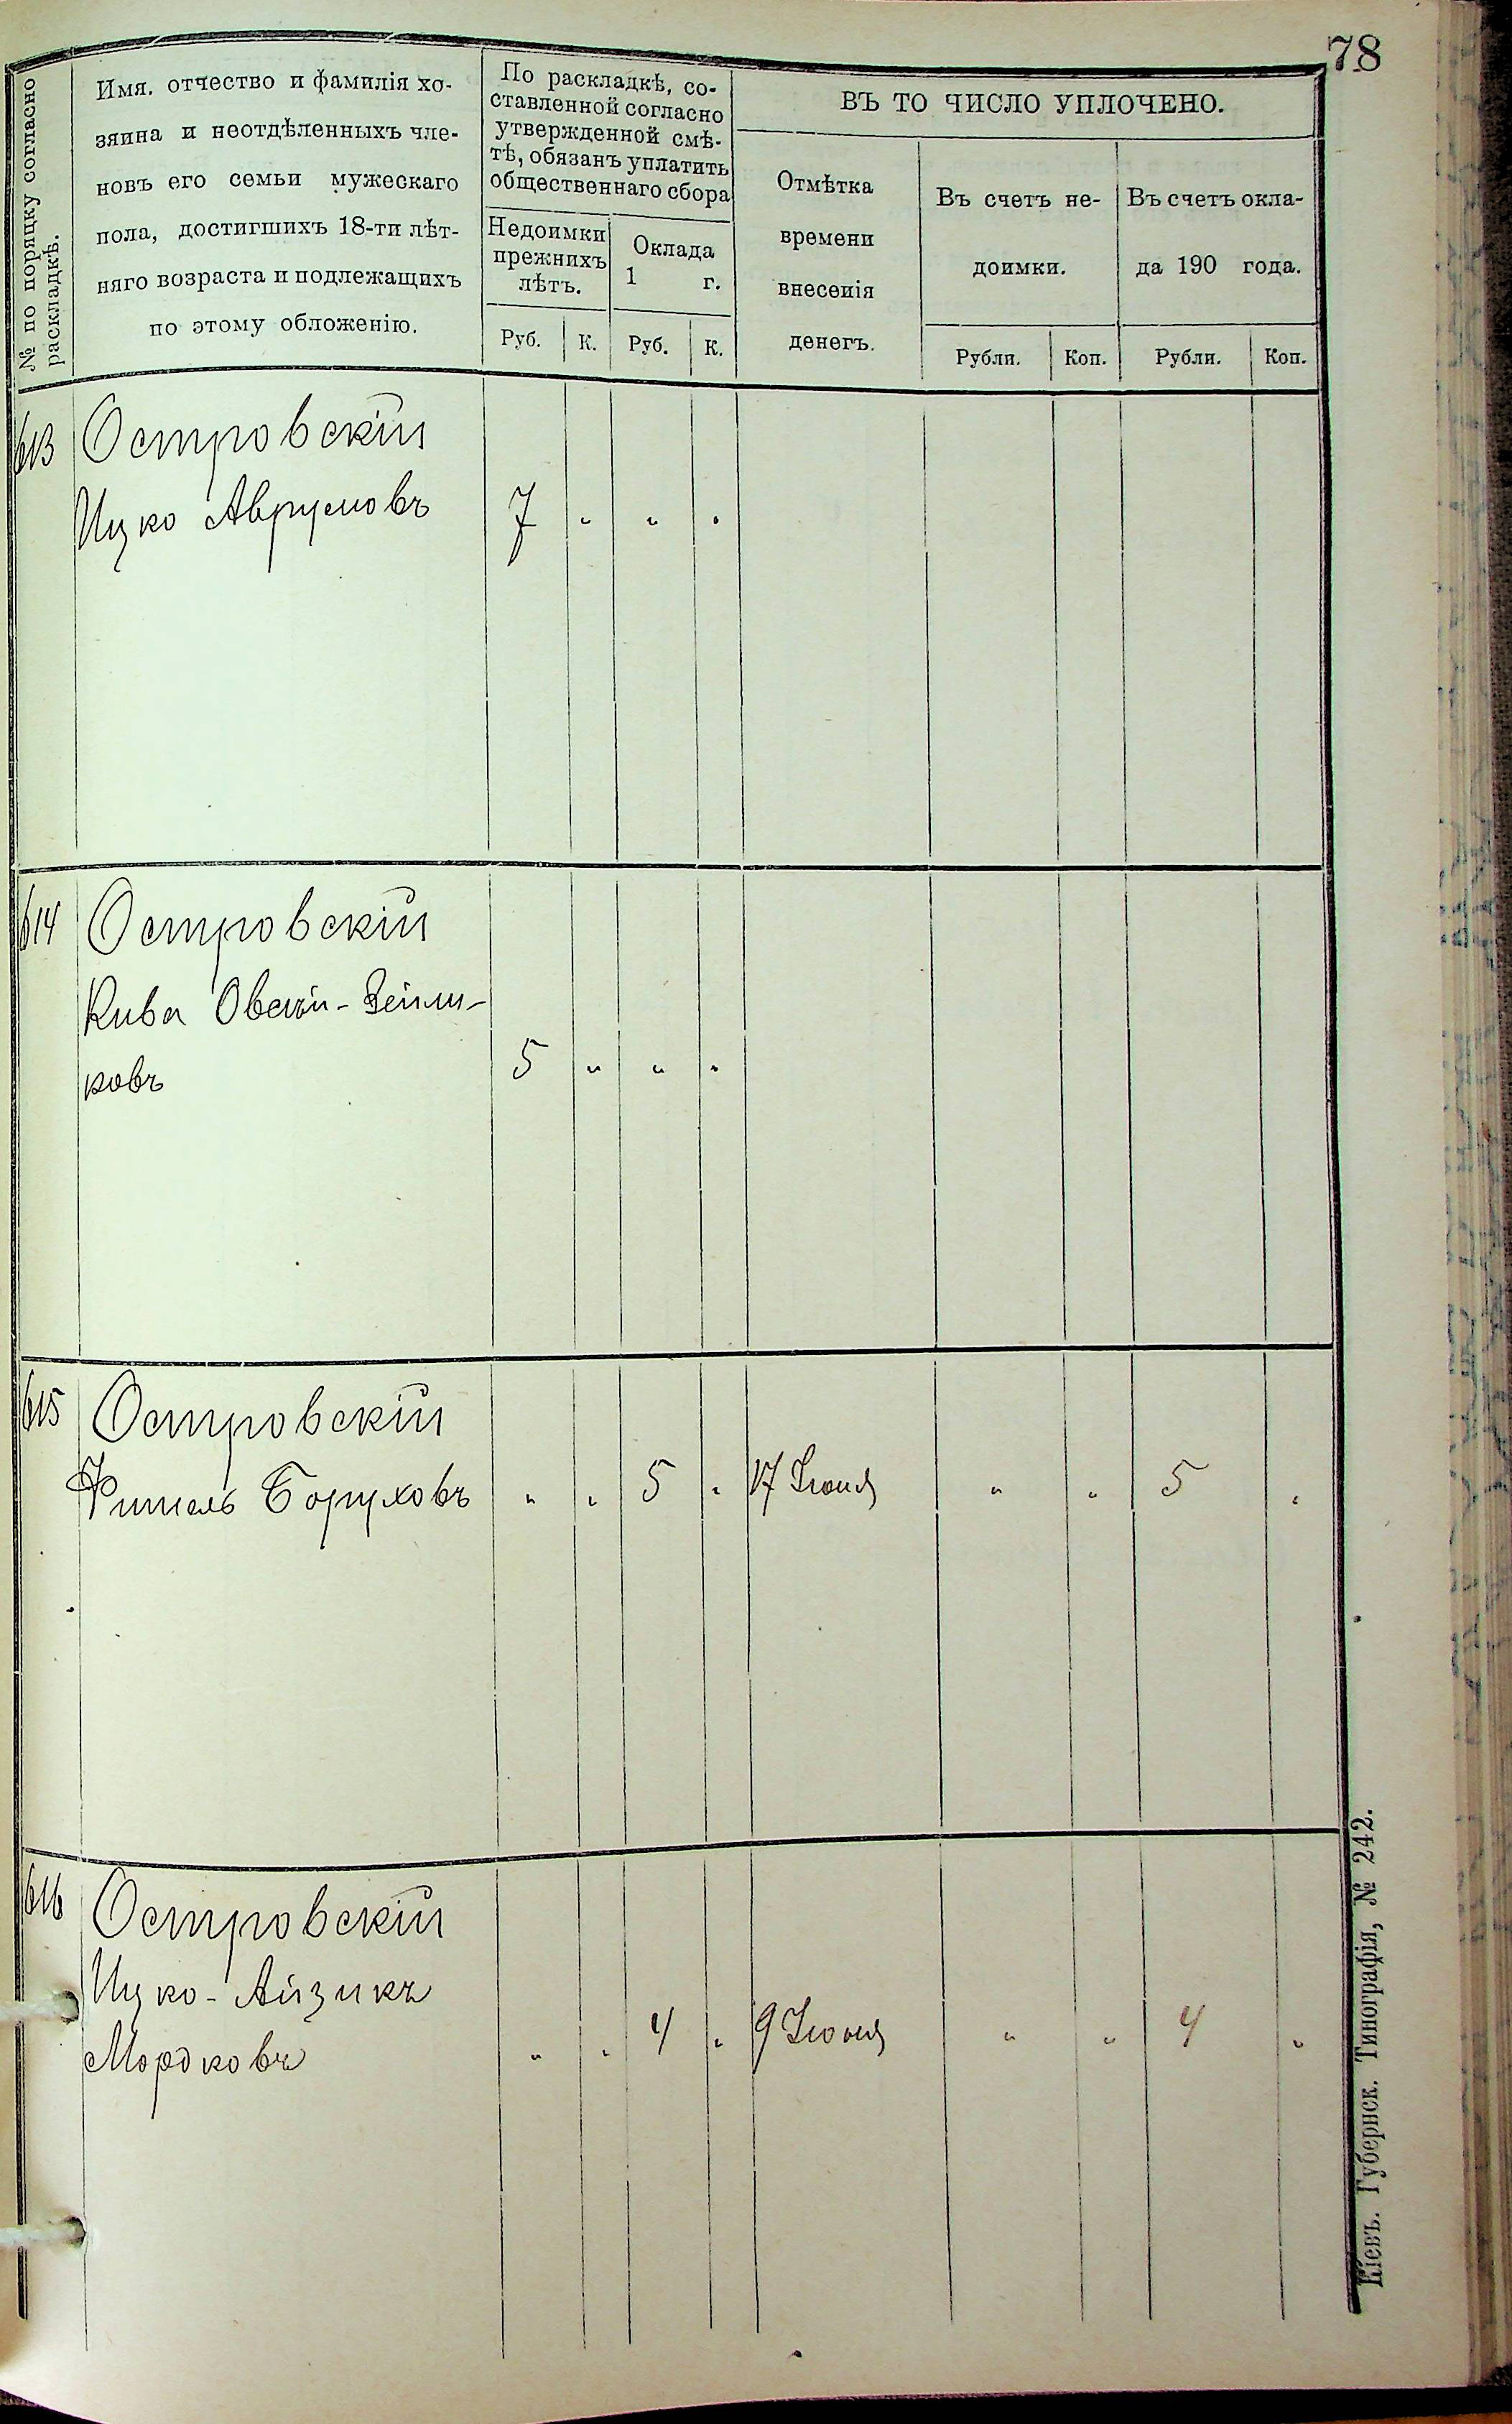 78
№ по порядку согласно
раскладкѣ.
Имя, отчество и фамилія хо-
зяина и неотдѣленныхъ чле-
новъ его семьи мужескаго
пола, достигшихъ 18-ти лѣт-
няго возраста и подлежащихъ
по этому обложенію.
По раскладкѣ, со-
ставленной согласно
утвержденной смѣ-
тѣ, обязанъ уплатить
общественнаго сбора
Недоимки
прежнихъ
лѣтъ.
Оклада
1 г.
Руб. К. Руб. К.
ВЪ ТО ЧИСЛО УПЛОЧЕНО.
Отмѣтка
времени
внесенія
денегъ.
Въ счетъ не-
доимки.
Въ счетъ окла-
да 190 года.
Рубли. Коп. Рубли. Коп.
613 Островскій
Ицко Аврумовъ 7 " " "
614 Островскій
Кива Овсѣй-Зейли-
ковъ 5 " " "
615 Островскій
Фишель Боруховъ " " 5 " 17 Іюня " " 5 "
616 Островскій
Ицко-Айзикъ
Мордковъ " " 4 " 9 Іюня " " 4 "
Кіевъ. Губернск. Типографія, № 242.